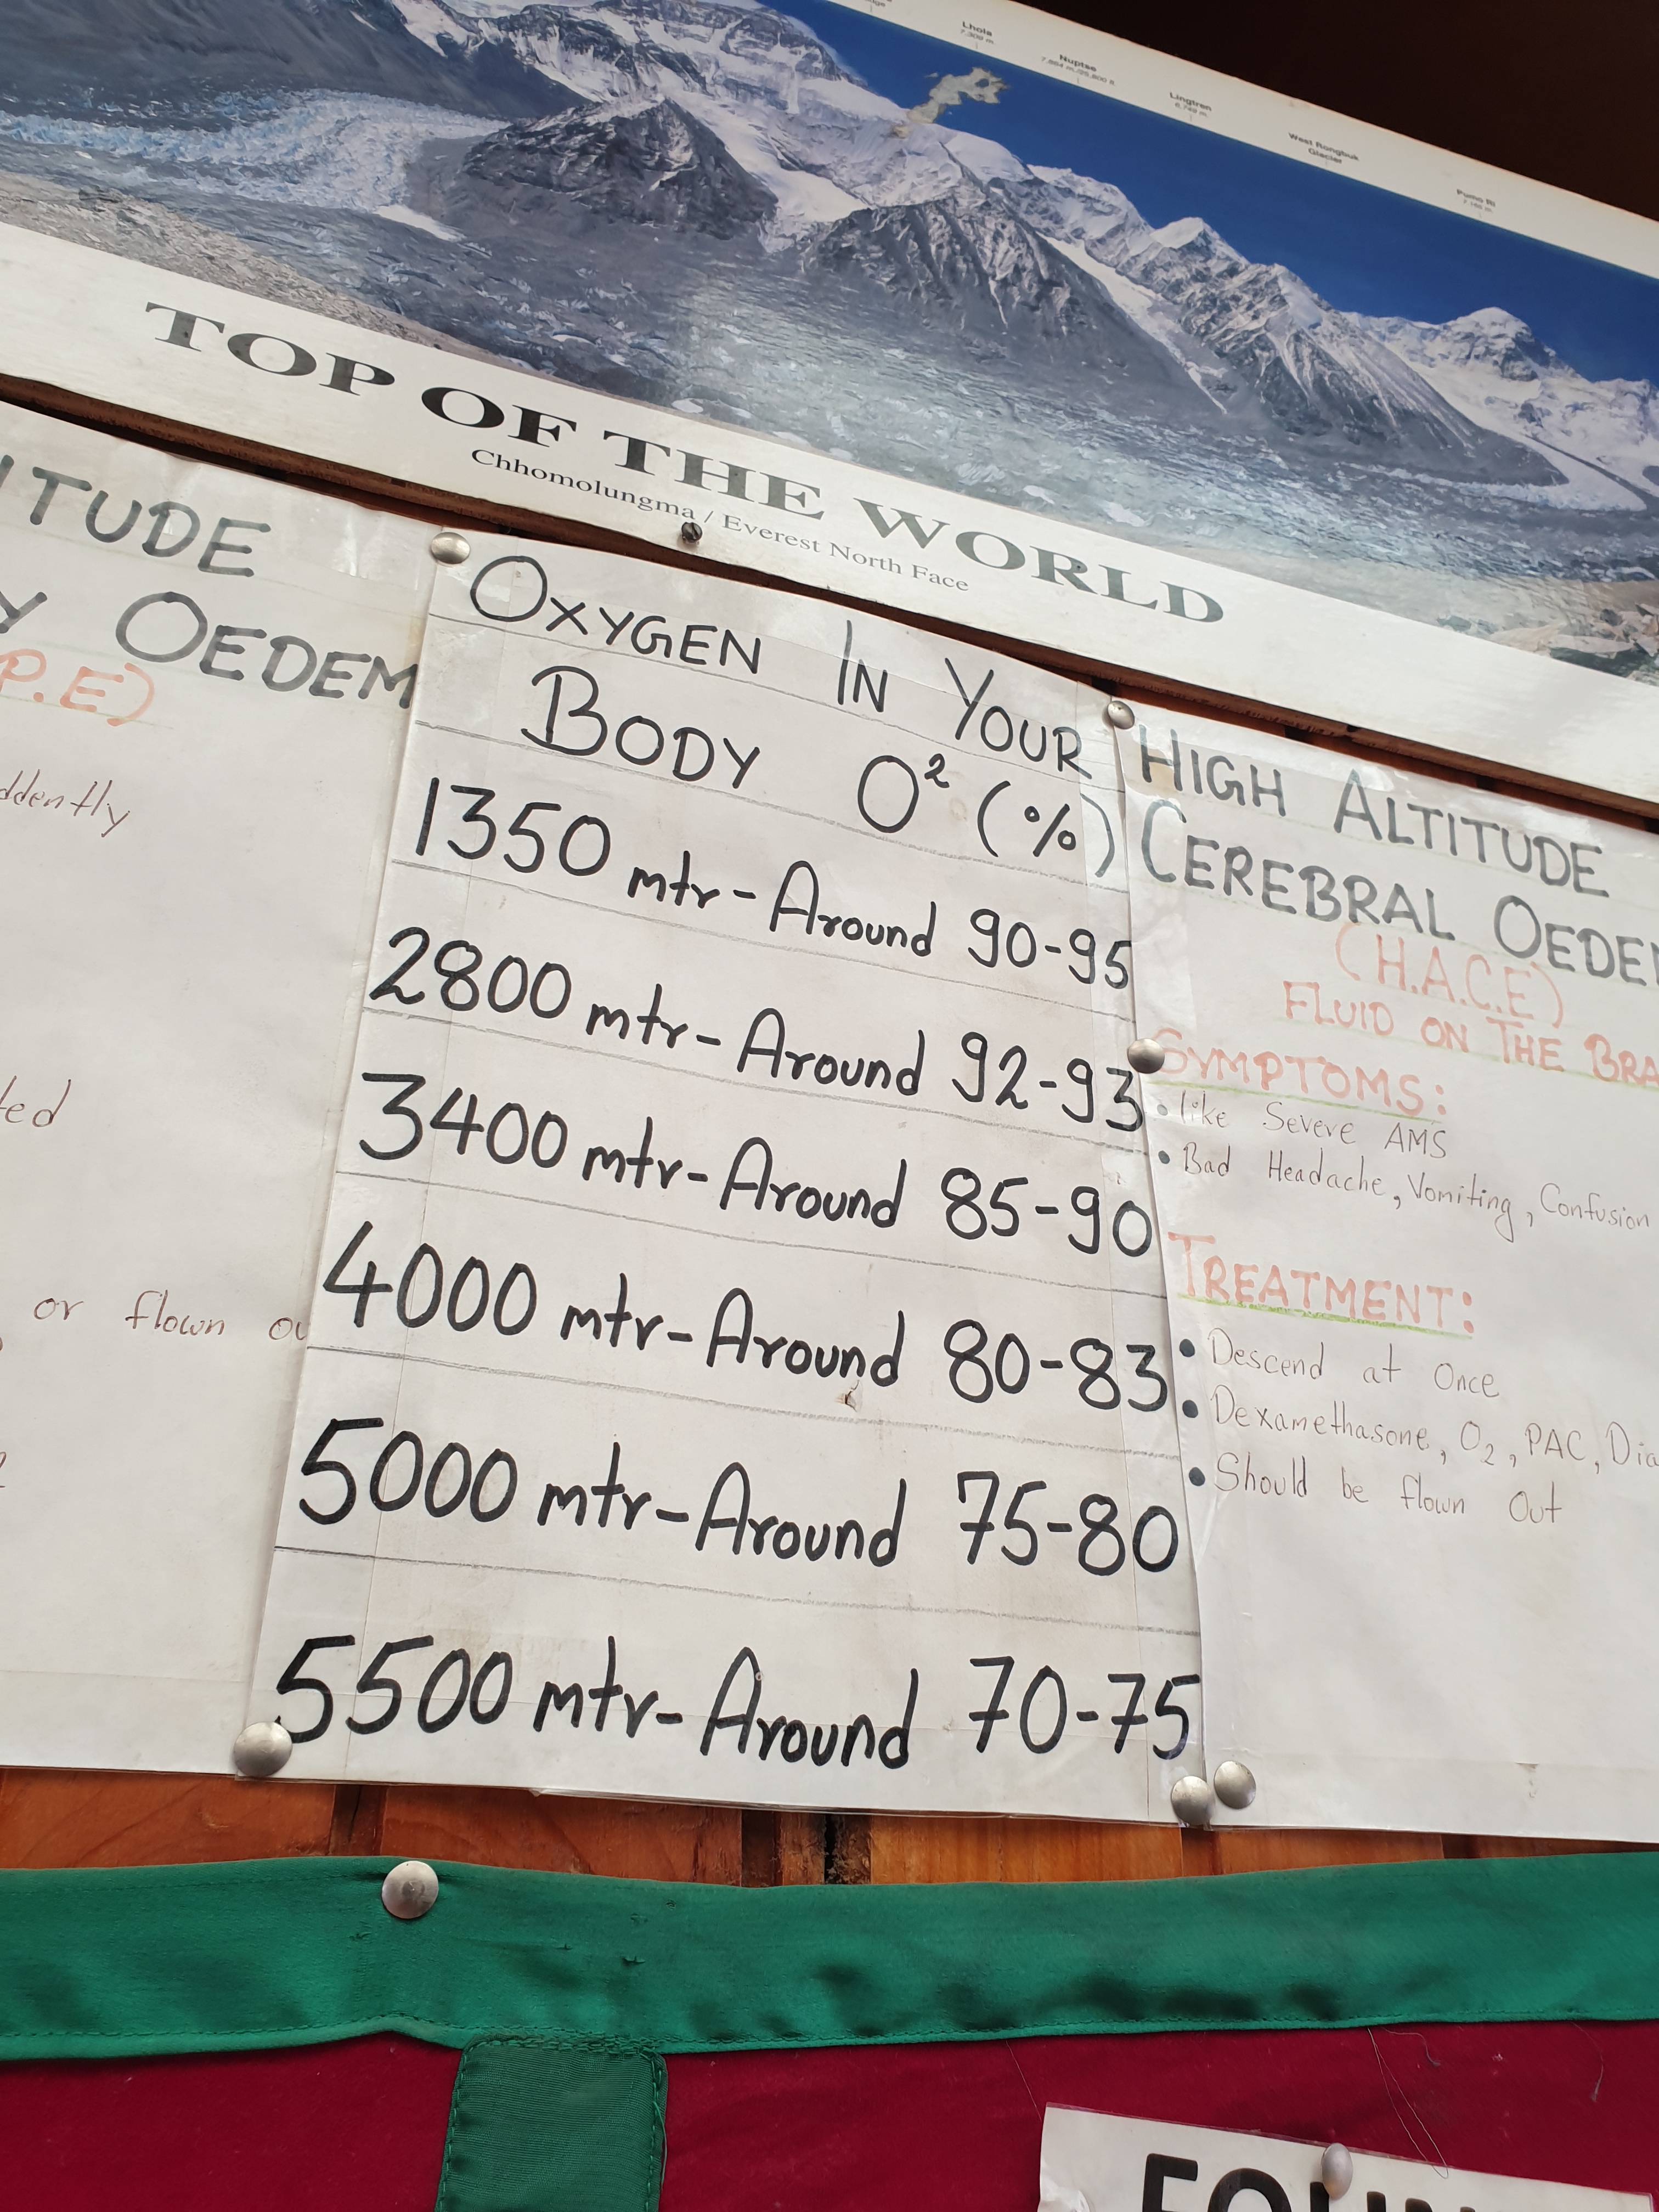 Lhola
7,309 m.
Nuptse
7,864 m./25,800 ft
Lingtren
6,749 m.
West Rongbuk
Glacier
Pumo Ri
7,165 m.
TOP OF THE WORLD
Chhomolungma / Everest North Face
ITUDE
Y OEDEM
P.E)
ddently
ted
or flown ou
OXYGEN IN YOUR
BODY O² (%)
1350 mtr-Around 90-95
2800 mtr-Around 92-93
3400 mtr-Around 85-90
4000 mtr-Around 80-83
5000 mtr-Around 75-80
5500 mtr-Around 70-75
HIGH ALTITUDE
CEREBRAL OEDE
(H.A.C.E)
FLUID ON THE BRA
SYMPTOMS:
• like Severe AMS
• Bad Headache, Vomiting, Confusion
TREATMENT:
• Descend at Once
• Dexamethasone, O₂, PAC, Dia
• Should be flown Out